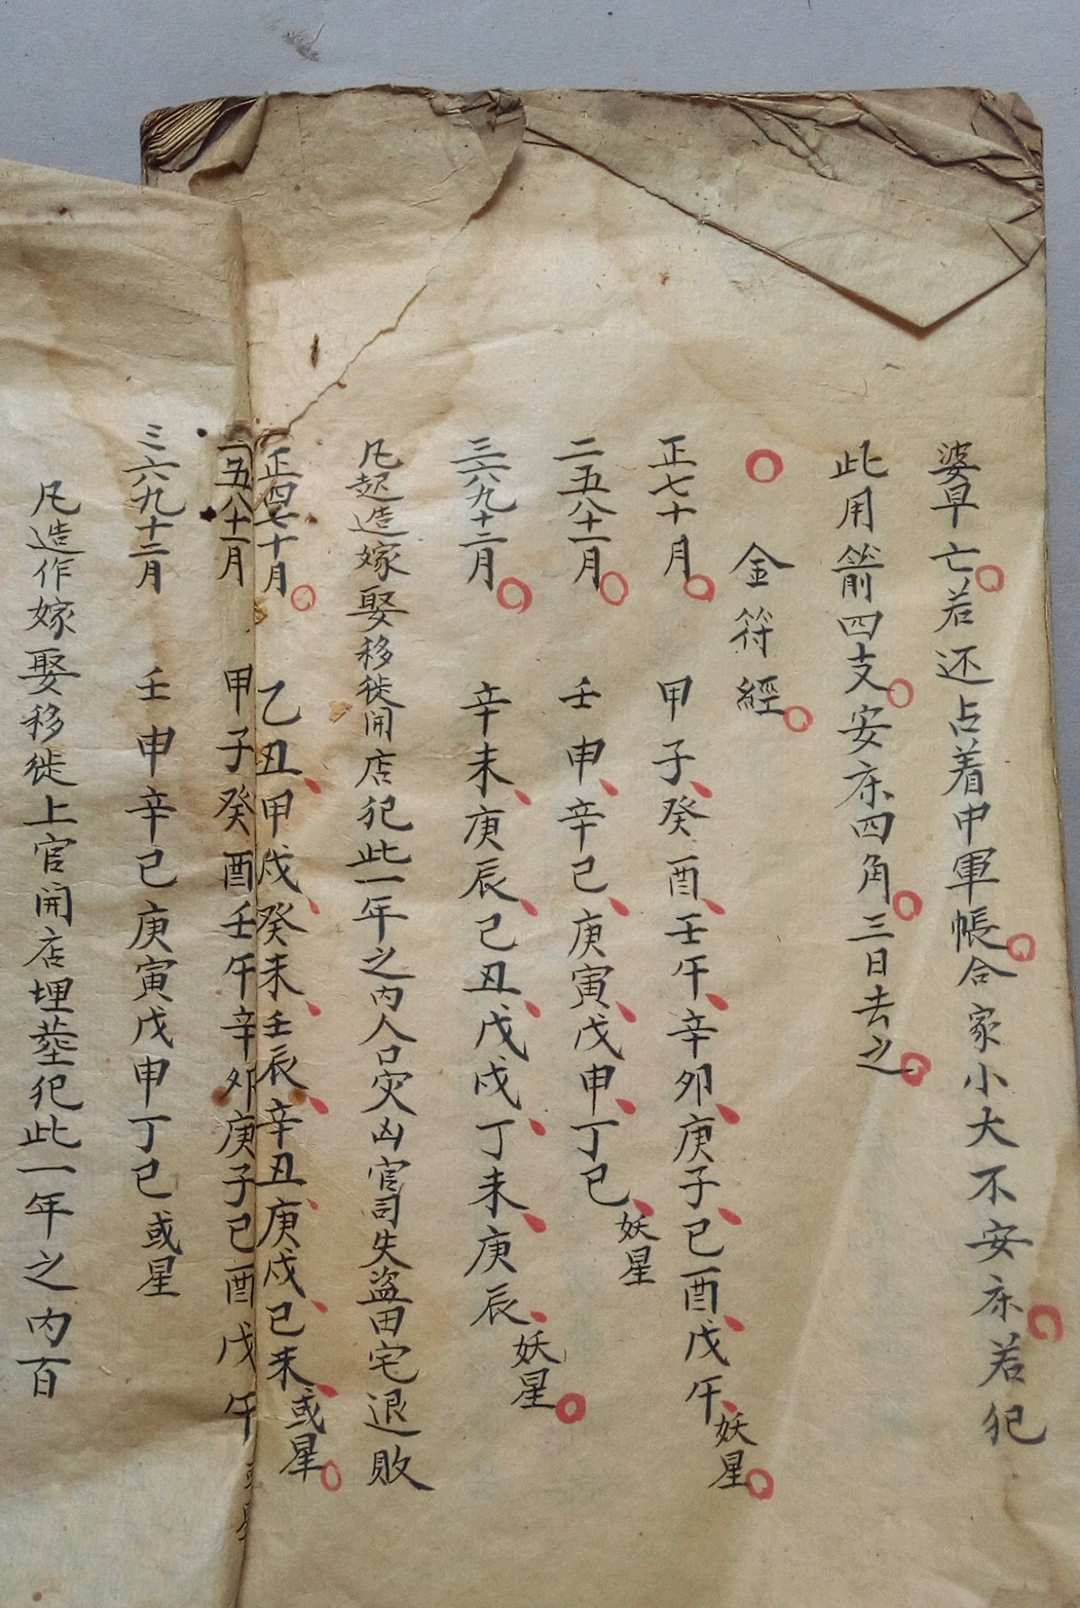 婆早亡若还占着中軍帳合家小大不安床若犯
此用箭四支安床四角三日去之
金符經
正七十月 甲子癸酉壬午辛卯庚子己酉戊午妖星
二五八十一月 壬申辛巳庚寅戊申丁巳妖星
三六九十二月 辛未庚辰己丑戊戌丁未庚辰妖星
凡起造嫁娶移徙開店犯此一年之內人口灾凶官司失盗田宅退敗
正四七十月 乙丑甲戌癸未壬辰辛丑庚戌己未或星
二五八十一月 甲子癸酉壬午辛卯庚子己酉戊午
三六九十二月 壬申辛巳庚寅戊申丁巳或星
凡造作嫁娶移徙上官開店埋塟犯此一年之內百